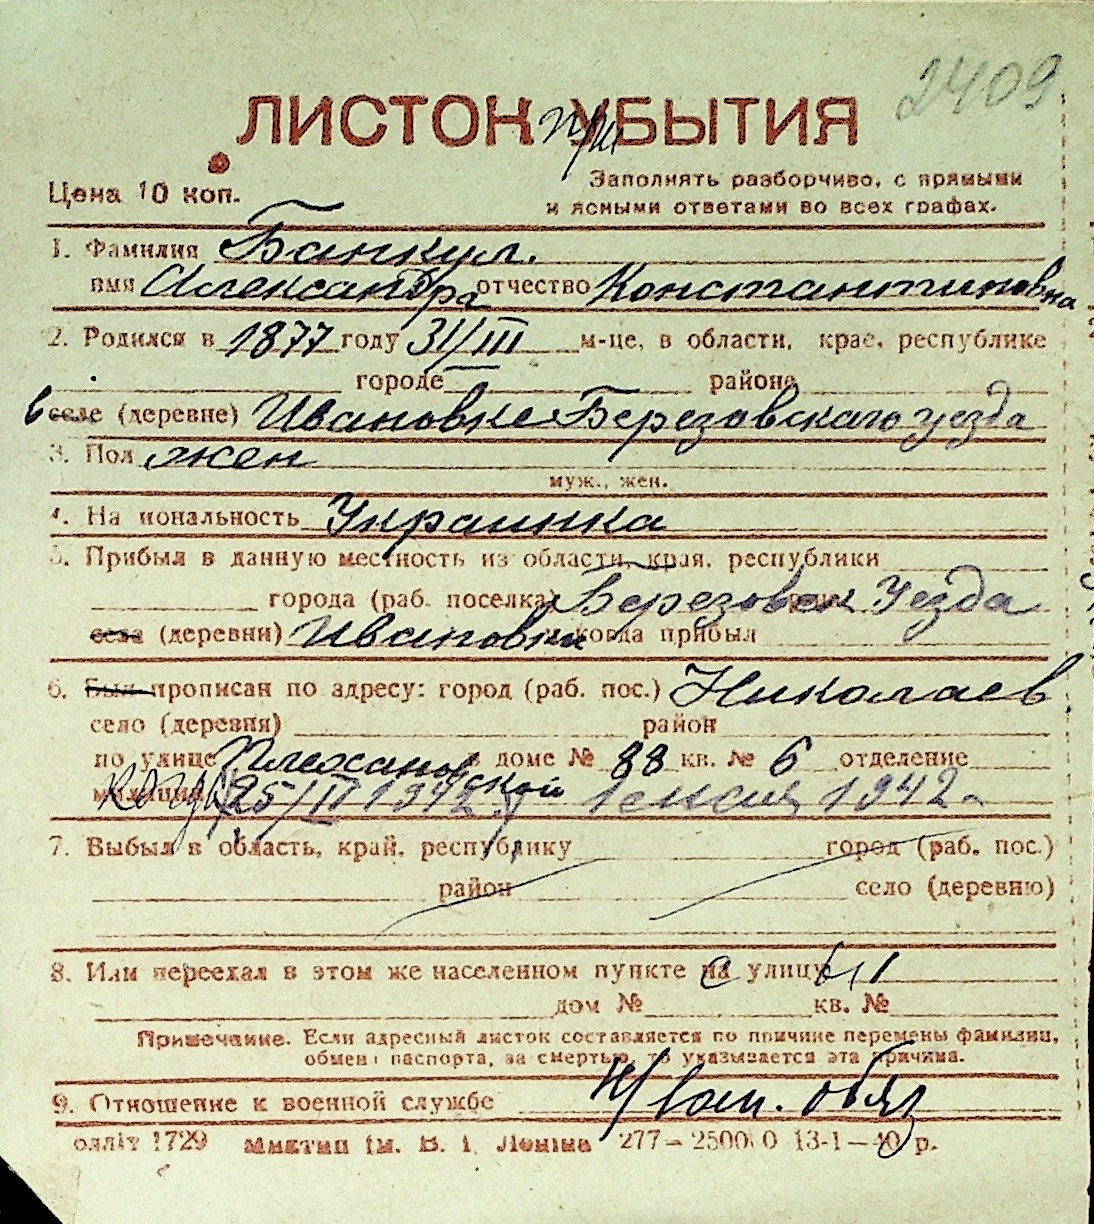 2409
ЛИСТОК при УБЫТИЯ
Цена 10 коп.
Заполнять разборчиво, с прямыми
и ясными ответами во всех графах.
1. Фамилия Банкул.
имя Александра отчество Константиновна
2. Родился в 1877 году 31/III м-це, в области, крае, республике
городе районе
в селе (деревне) Ивановке Березовского уезда
3. Пол жен
муж., жен.
4. Национальность Украинка
5. Прибыл в данную местность из области, края, республики
города (раб. поселка) Березовск Уезда
села (деревни) Ивановки и когда прибыл
6. Был прописан по адресу: город (раб. пос.) Николаев
село (деревня) район
по улице Плехановской в доме № 88 кв. № 6 отделение
милиции 25/II 1942 1942
7. Выбыл в область, край, республику город (раб. пос.)
район село (деревню)
8. Или переехал в этом же населенном пункте на улицу
дом № кв. №
Примечание. Если адресный листок составляется по причине перемены фамилии,
обмена паспорта, за смертью, то указывается эта причина.
9. Отношение к военной службе Н/воен. обяз
облліт 1729 Миктип ім. В. І. Леніна 277—25000 13-1—40 р.